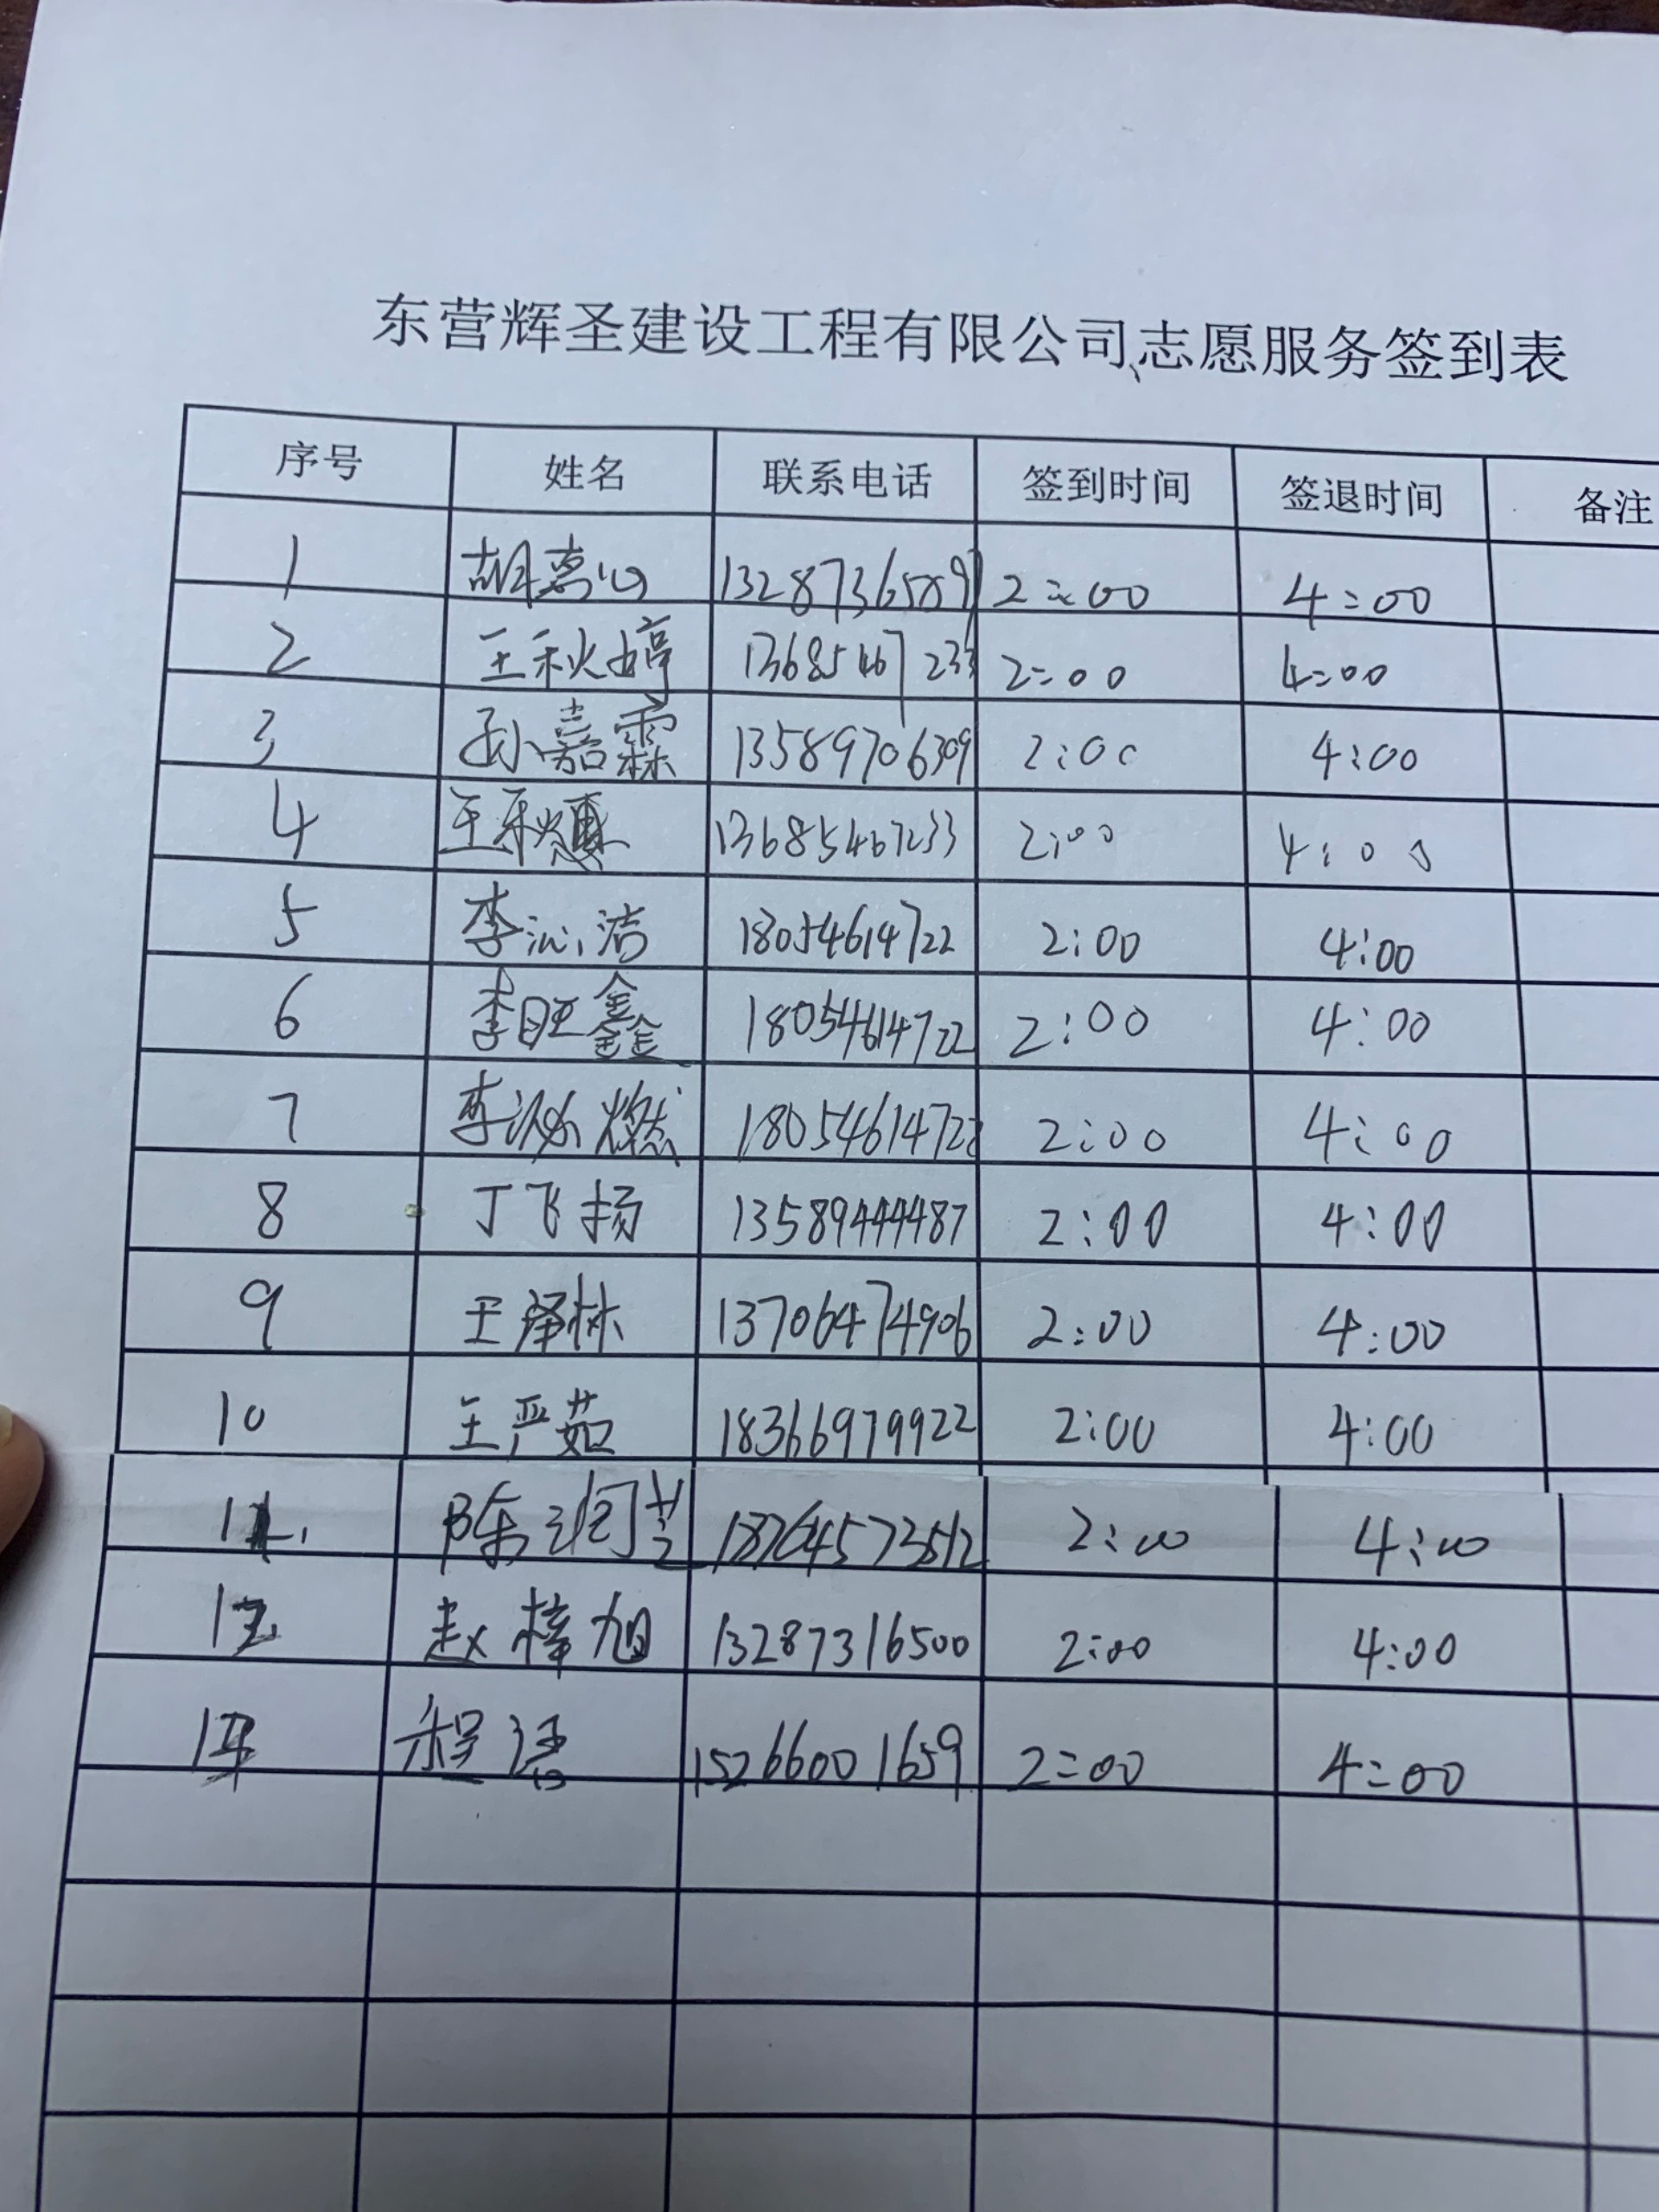 东营辉圣建设工程有限公司志愿服务签到表
序号 姓名 联系电话 签到时间 签退时间 备注
1 胡嘉心 13287365897 2:00 4:00
2 王秋婷 13685467233 2:00 4:00
3 孙嘉霖 13589706309 2:00 4:00
4 王秋 13685467233 2:00 4:00
5 李沁洁 18054614722 2:00 4:00
6 李旺鑫 18054614722 2:00 4:00
7 李 燃 18054614722 2:00 4:00
8 丁飞扬 13589444487 2:00 4:00
9 王泽林 13706474906 2:00 4:00
10 王严茹 18366979922 2:00 4:00
11 陈润兰 18764573512 2:00 4:00
12 赵梓旭 13287316500 2:00 4:00
程语 15266001659 2:00 4:00